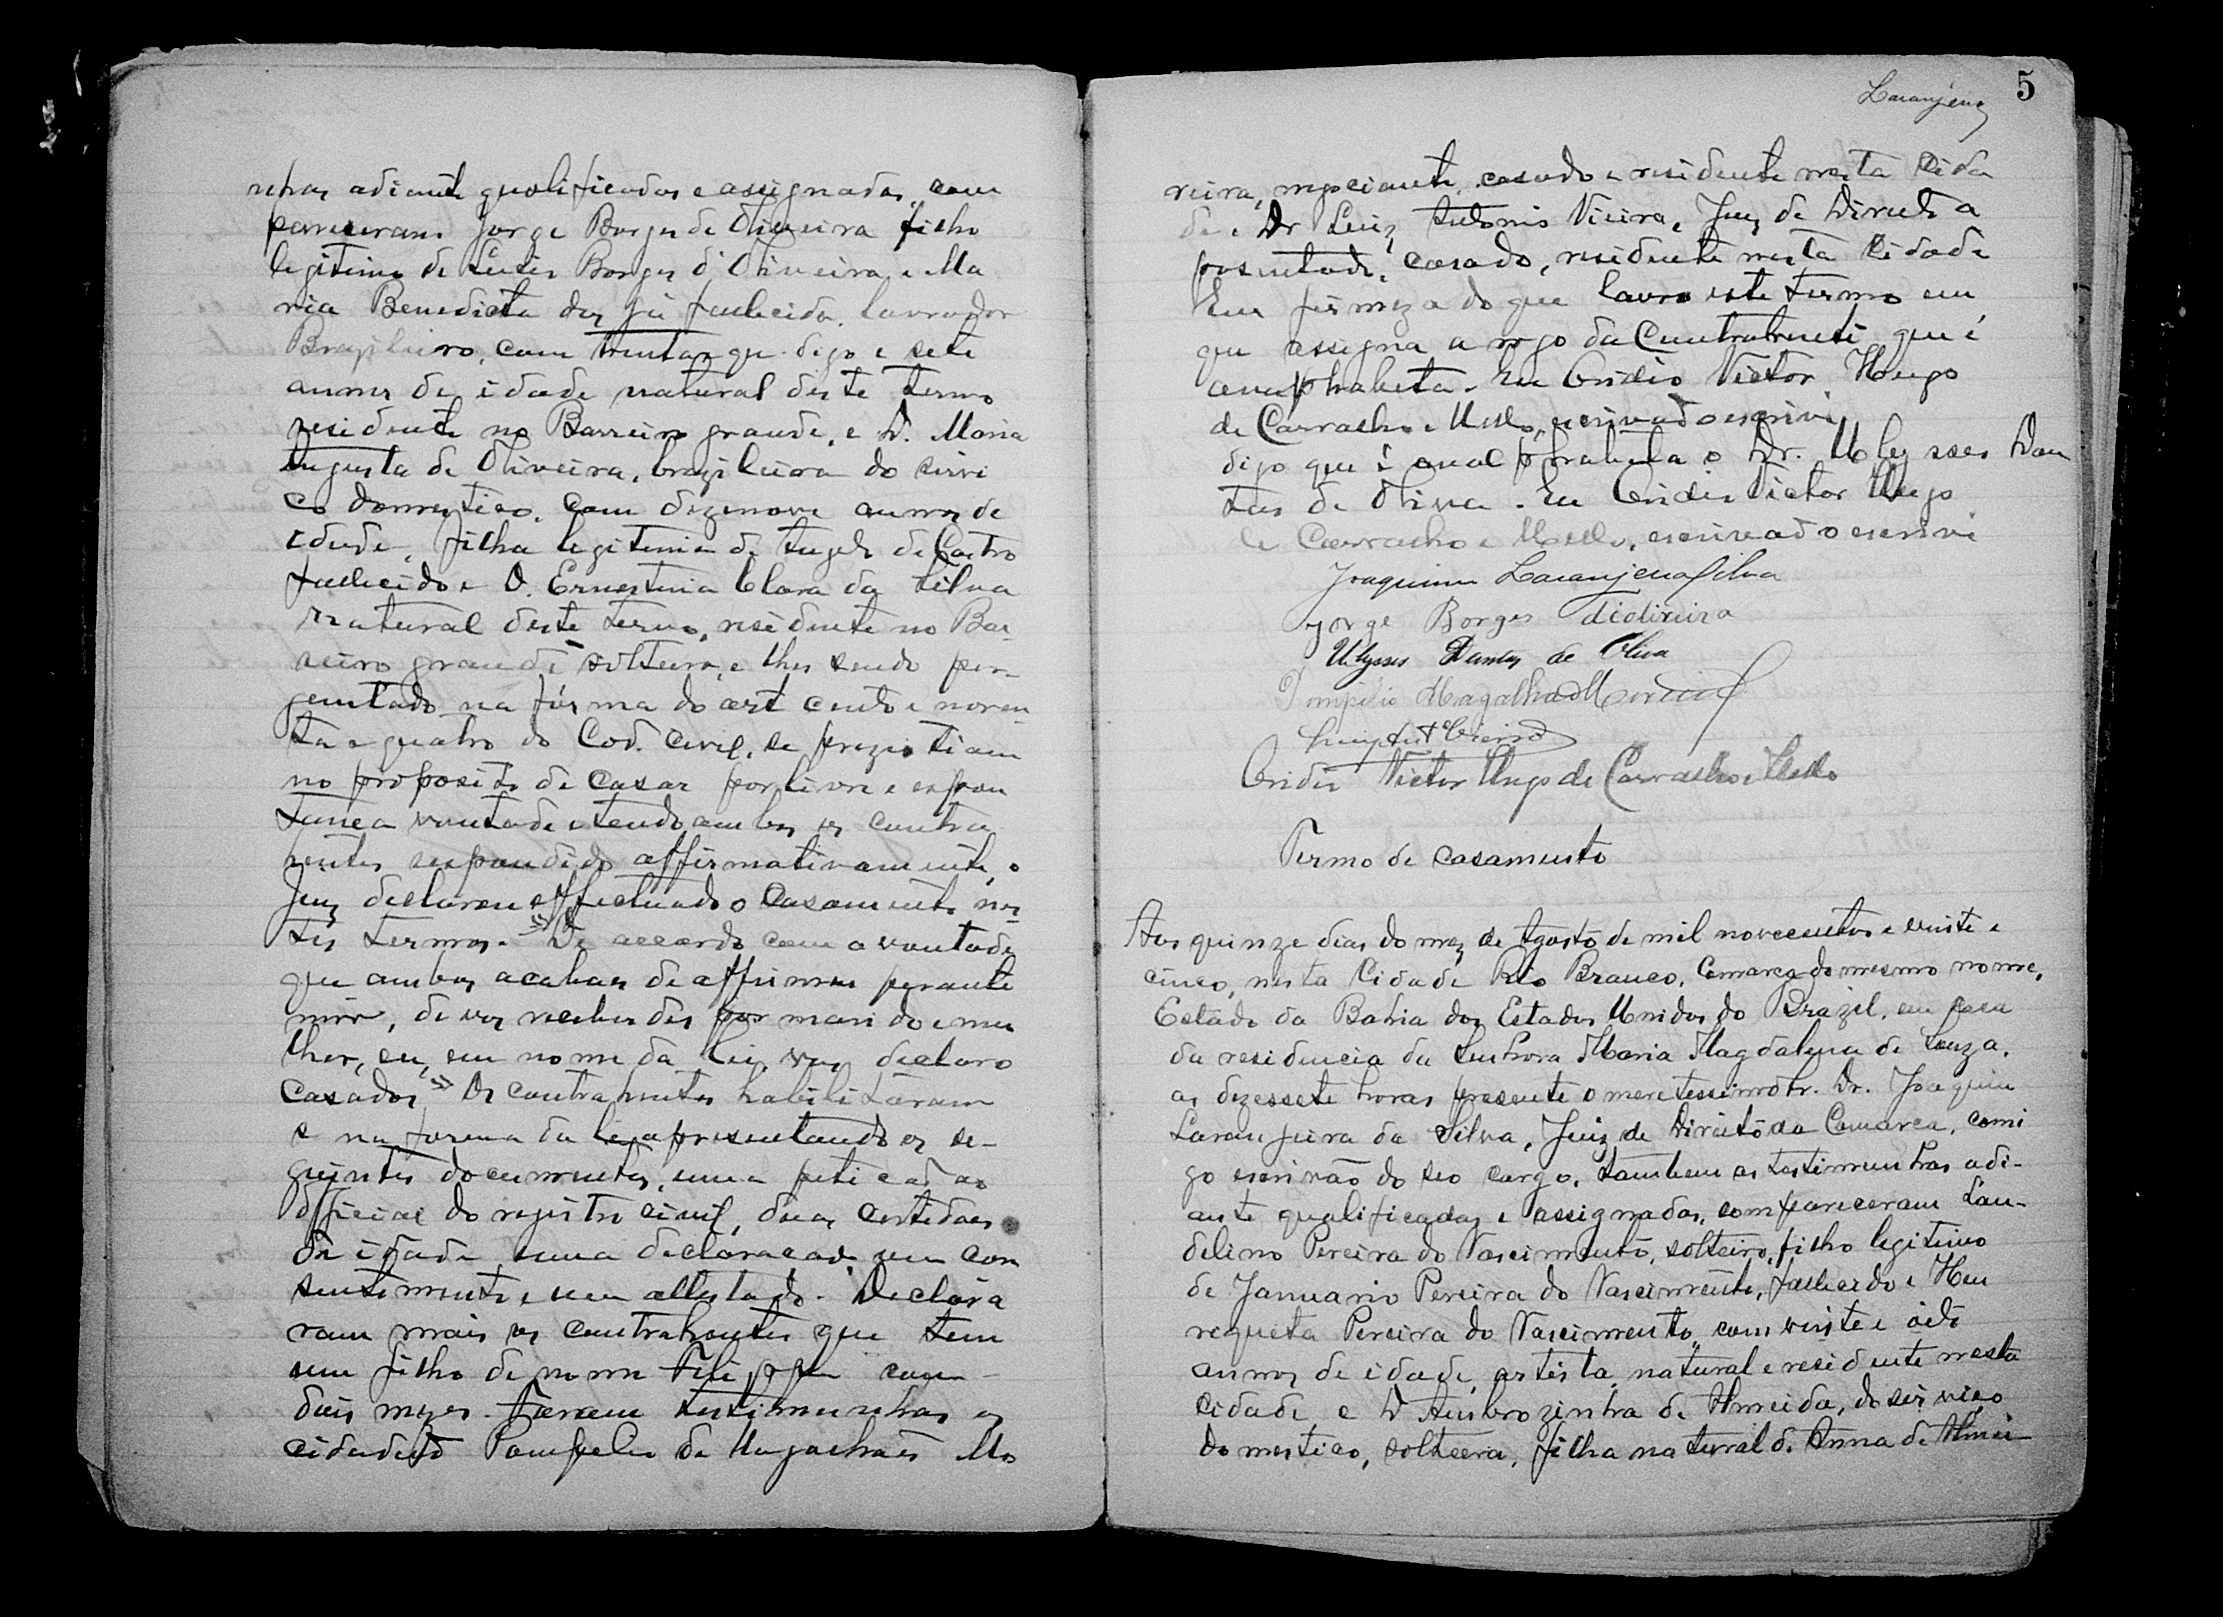 nhas adiante qualificadas e assignadas, com
pareceram Jorge Borges de Oliveira filho
legitimo de Borges d'Oliveira e Ma
ria Benedicta já fallecida, lavrador
Brazileiro, com trinta que digo e sete
annos de idade natural deste termo
residente no Barreiro grande, e D. Maria
Augusta de Oliveira, brazileira do servi
ço domestico, com dezenove annos de
idade, filha legitima de Angelo de Castro
fallecido e D. Ernestina Clara da Silva
natural deste termo, residente no Bar-
reiro grande solteira, e lhes sendo per-
guntado na fórma do art cento e noven
ta e quatro do Cod. Civil, se prezistiam
no proposito de casar por livre e espon
tanea vontade e tendo ambos os contra
hentes respondido affirmativamente, o
Juiz declarou effectuado o casamento nes
tes termos. "De accordo com a vontade
que ambos acabaes de affirmar perante
mim, de vos receberdes por marido e mu
lher, eu, em nome da lei, vos declaro
casados" Os contrahentes habilitaram
se na forma da lei apresentando os se-
guintes documentos, uma petição ao
official do registro civil, duas certidões
de idade uma declaração, um con
sentimento e um attestado. Declara
ram mais os contrahentes que tem
um filho de nome com
dois mezes. Foram testimunhas os
cidadãos Pompilio de Magalhães Mo
5
Laranjeira
reira, negociante, casado e residente nesta Cida
de e Dr Luiz Antonio Vieira, Juiz de Direito a
posentado, casado, residente nesta Cidade
Em firmeza do que lavro este termo em
que assigna a rogo da Contrahente que é
analphabeta. Eu Victor Hugo
de Carvalho e Mello, escrivão o escrevi
digo que é analphabeta o Dr. Ulysses Dan
tas de Oliva. Eu Victor Hugo
de Carvalho e Mello, escrivão o escrevi
Joaquim Laranjeira Silva
Jorge Borges dioliveira
Ulysses Dantas de Oliva
Pompilio Magalhães Moreira
Luiz Antº Vieira
Victor Hugo de Carvalho e Mello
Termo de casamento
Aos quinze dias do mez de Agosto de mil novecentos e vinte e
cinco, nesta Cidade Rio Branco, Comarca do mesmo nome,
Estado da Bahia dos Estados Unidos do Brazil, em casa
da residencia da Senhora Maria Magdalena de Souza,
as dezessete horas presente o meretessimo Sr. Dr. Joaquim
Laranjeira da Silva, Juiz de Direito da Comarca, comi
go escrivão do seo cargo, tambem as testimunhas adi-
ante qualificadas e assignadas, compareceram Lau-
delino Pereira do Nascimento, solteiro, filho legitimo
de Januario Pereira do Nascimento, fallecido e Hen
requeta Pereira do Nascimento, com vinte e oito
annos de idade, artista, natural e residente nesta
cidade, e D. Ambrozinha de Almeida, do serviço
domestico, solteira, filha natural de Anna de Almei